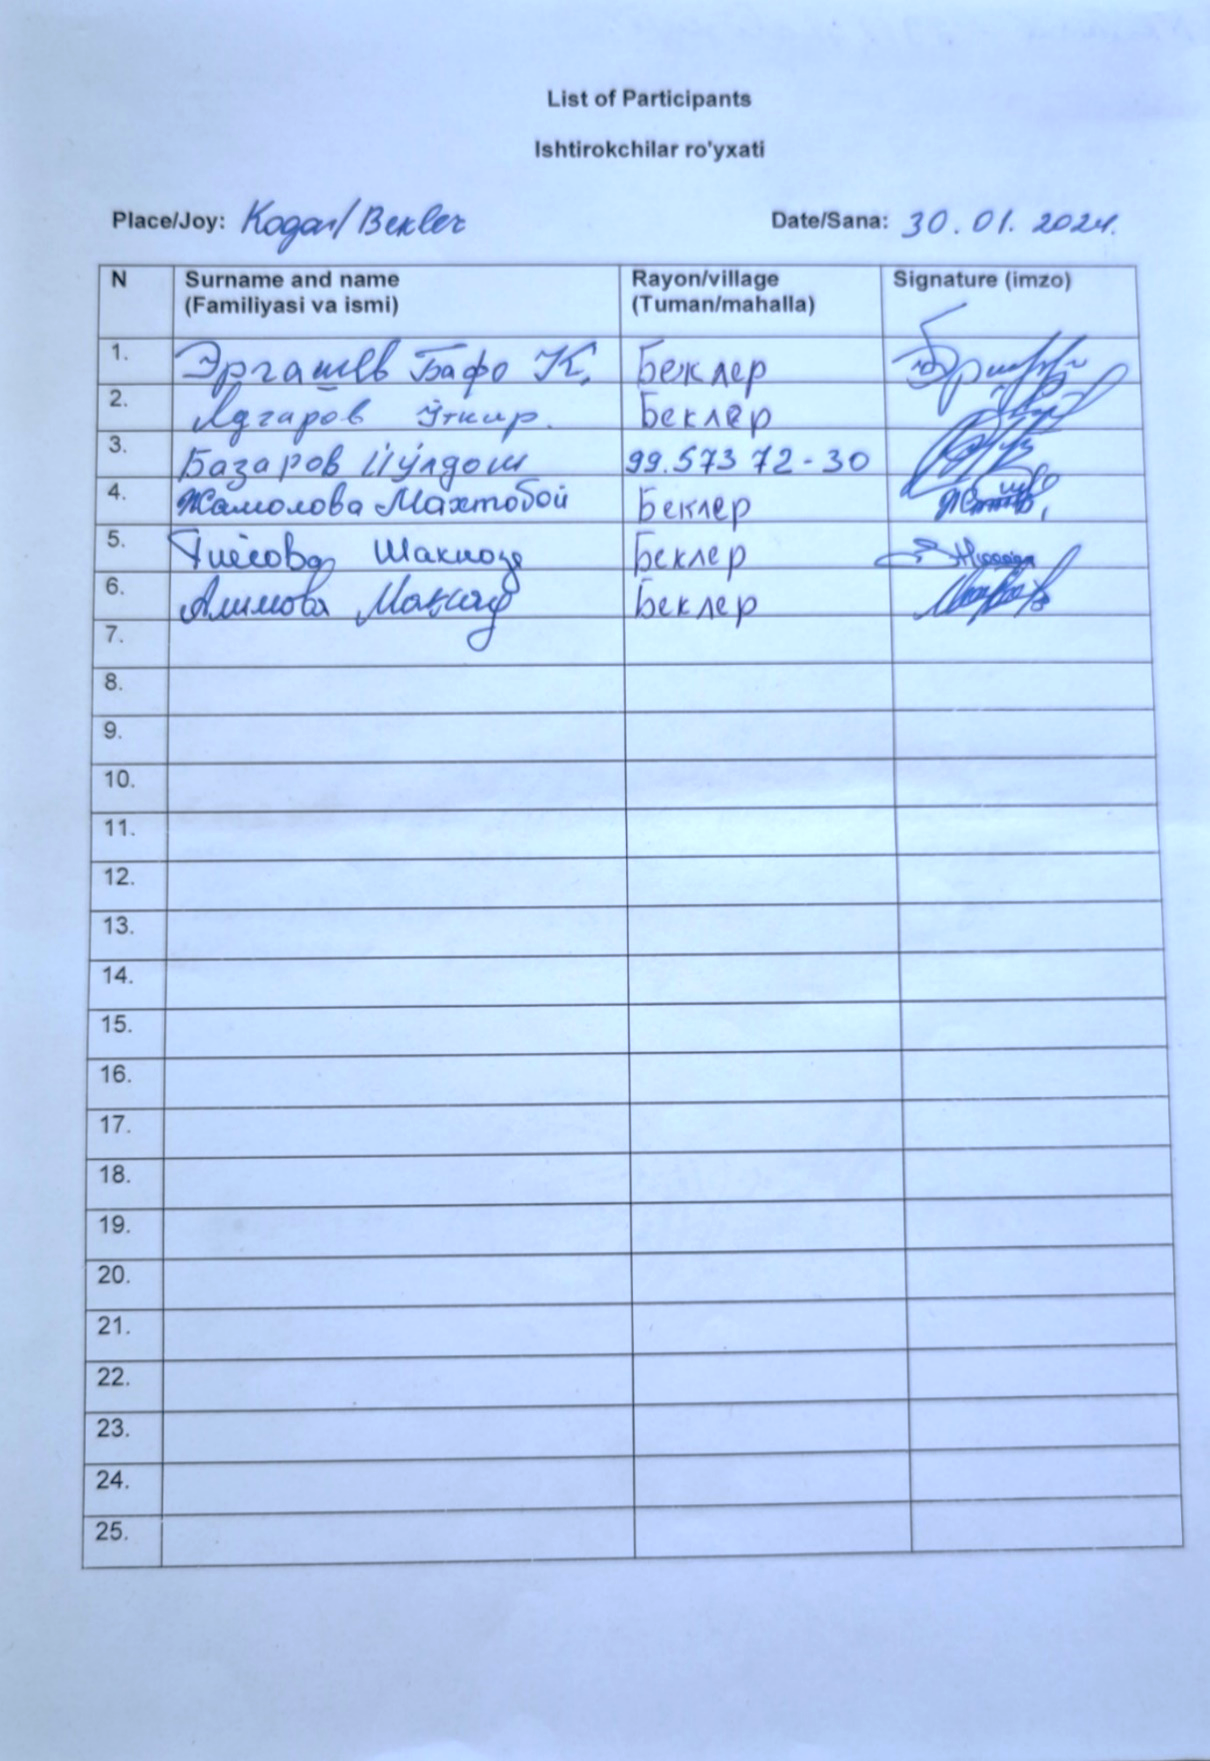 List of Participants
Ishtirokchilar ro'yxati
Place/Joy: Kogon/Bekler Date/Sana: 30.01.2024.
N Surname and name (Familiyasi va ismi) Rayon/village (Tuman/mahalla) Signature (imzo)
1. Эргашев Бафо К. Беклер
2. Адгаров Ўткир. Беклер
3. Базаров Йўлдош 99.573 72-30
4. Жамолова Махтобой Беклер
5. Беклер
6. Алимова Мақсад Беклер
7.
8.
9.
10.
11.
12.
13.
14.
15.
16.
17.
18.
19.
20.
21.
22.
23.
24.
25.